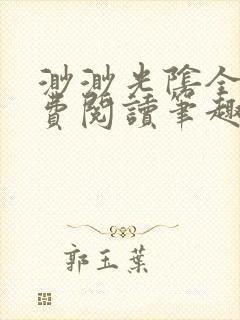 渺渺光陰全
費閱讀筆趣
郭玉葉